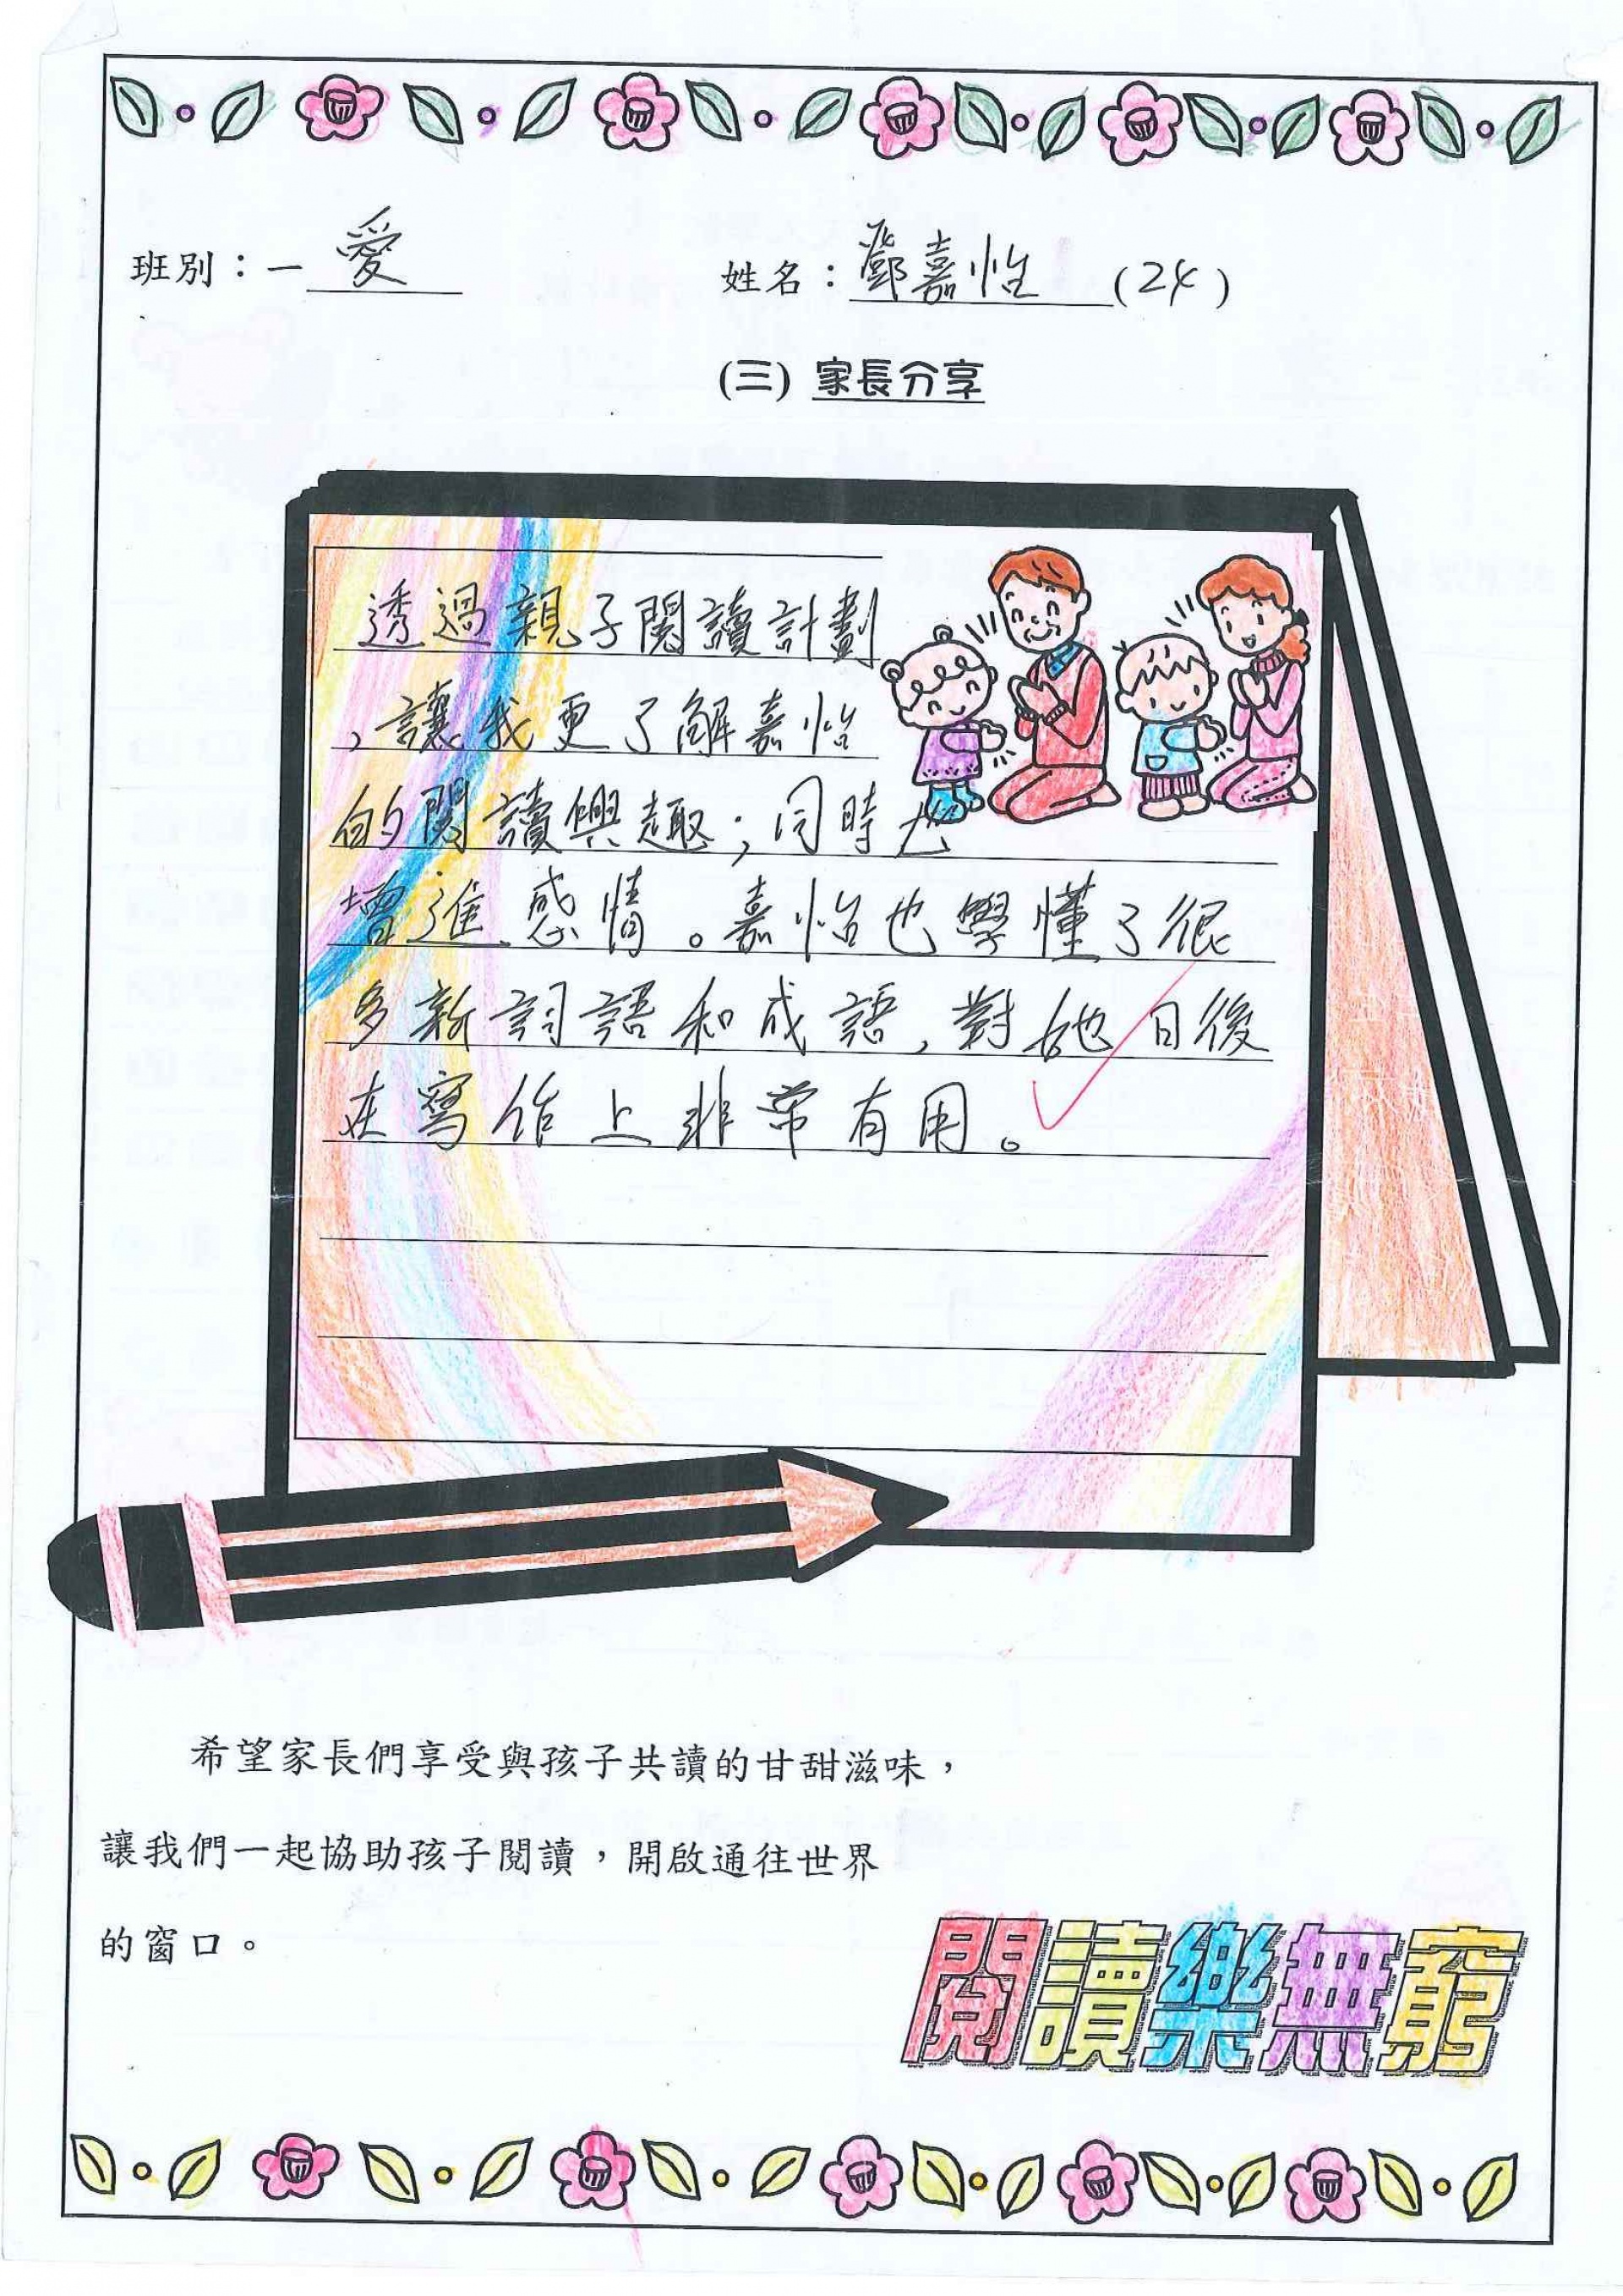 班別：一愛 姓名：鄧嘉怡(24)
(三) 家長分享
透過親子閱讀計劃
，讓我更了解嘉怡
的閱讀興趣；同時也
增進感情。嘉怡也學懂了很
多新詞語和成語，對她日後
在寫作上非常有用。
希望家長們享受與孩子共讀的甘甜滋味，
讓我們一起協助孩子閱讀，開啟通往世界
的窗口。
閱讀樂無窮